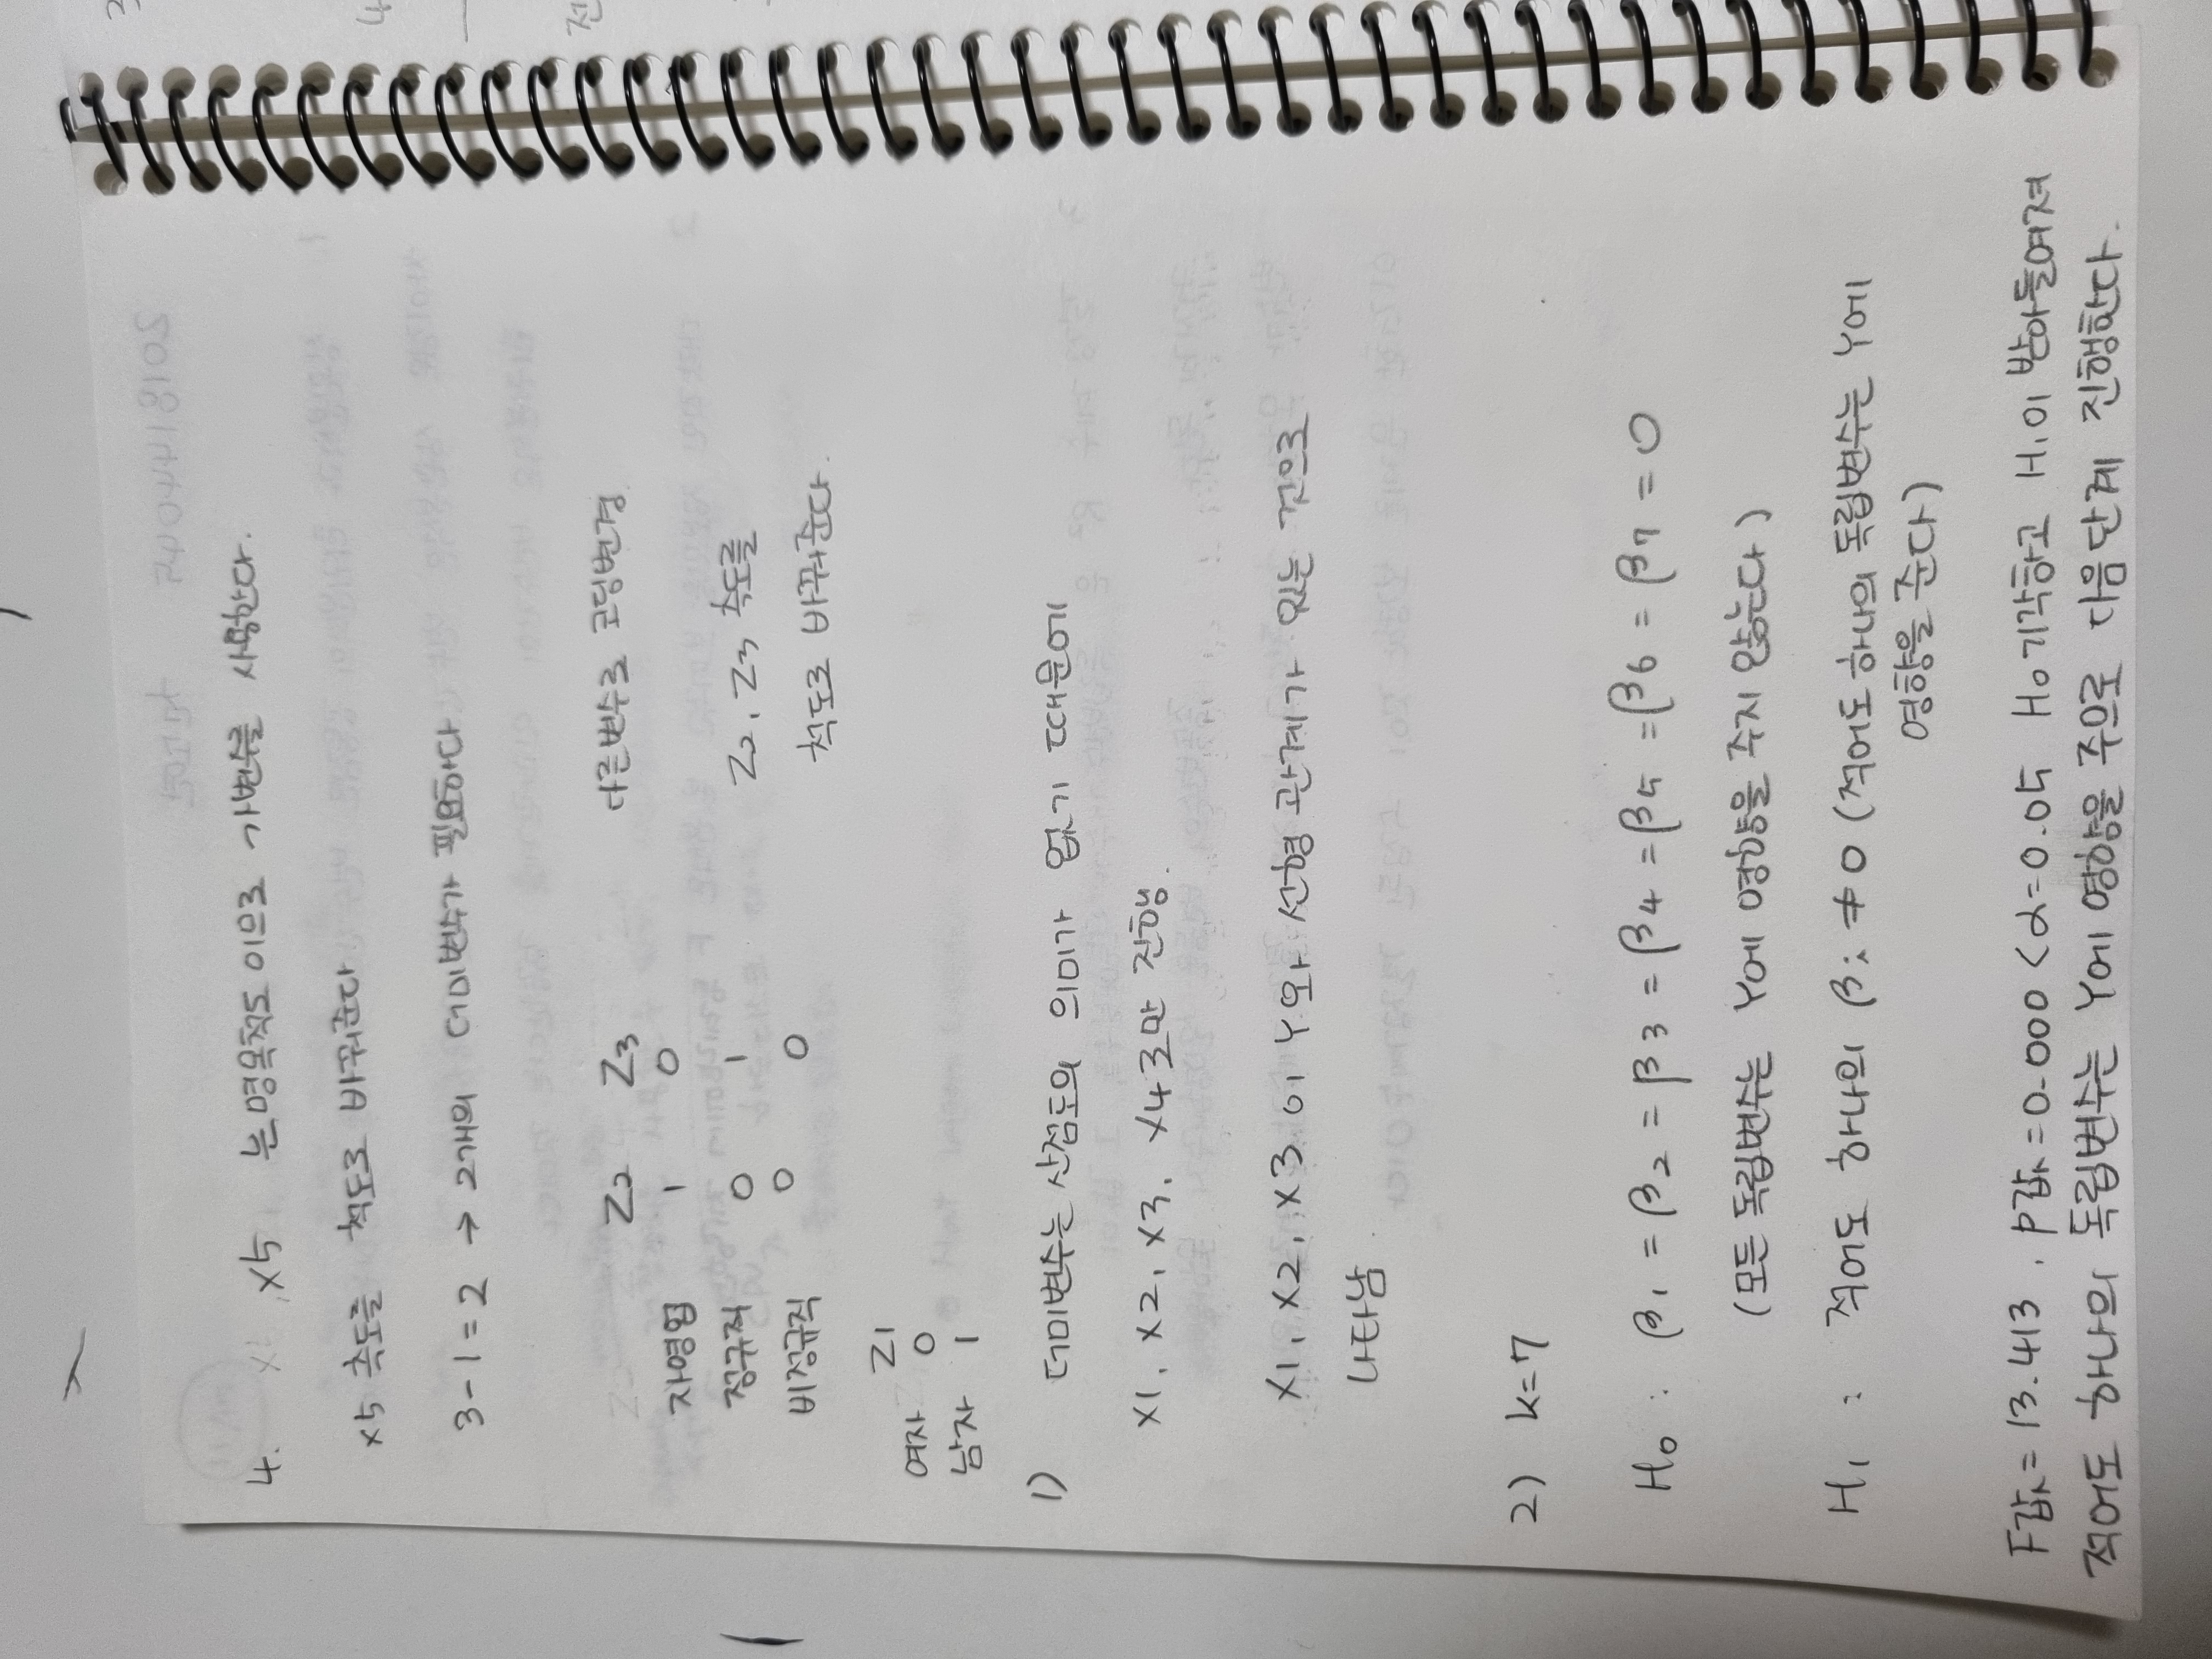 4. X5 는 명목척도 이므로 가변수를 사용한다.
X5 측도를 척도로 바꿔준다
3-1=2 → 2개의 더미변수가 필요하다
Z2 Z3 다른변수로 코딩변경
자영업 1 0
정규직 0 1 Z2, Z3 측도를
비정규직 0 0 척도로 바꿔준다.
Z1
여자 0
남자 1
1) 더미변수는 산점도의 의미가 없기 때문에
X1, X2, X3, X4로만 진행.
X1, X2, X3 이 Y와 선형 관계가 있는 것으로
나타남.
2) k=7
H0 : β1 = β2 = β3 = β4 = β5 = β6 = β7 = 0
(모든 독립변수는 Y에 영향을 주지 않는다)
H1 : 적어도 하나의 βi ≠ 0 (적어도 하나의 독립변수는 Y에
영향을 준다)
F값 = 13.413, p값 = 0.000 < α = 0.05 H0 기각하고 H1이 받아들여져
적어도 하나의 독립변수는 Y에 영향을 주므로 다음단계 진행한다.